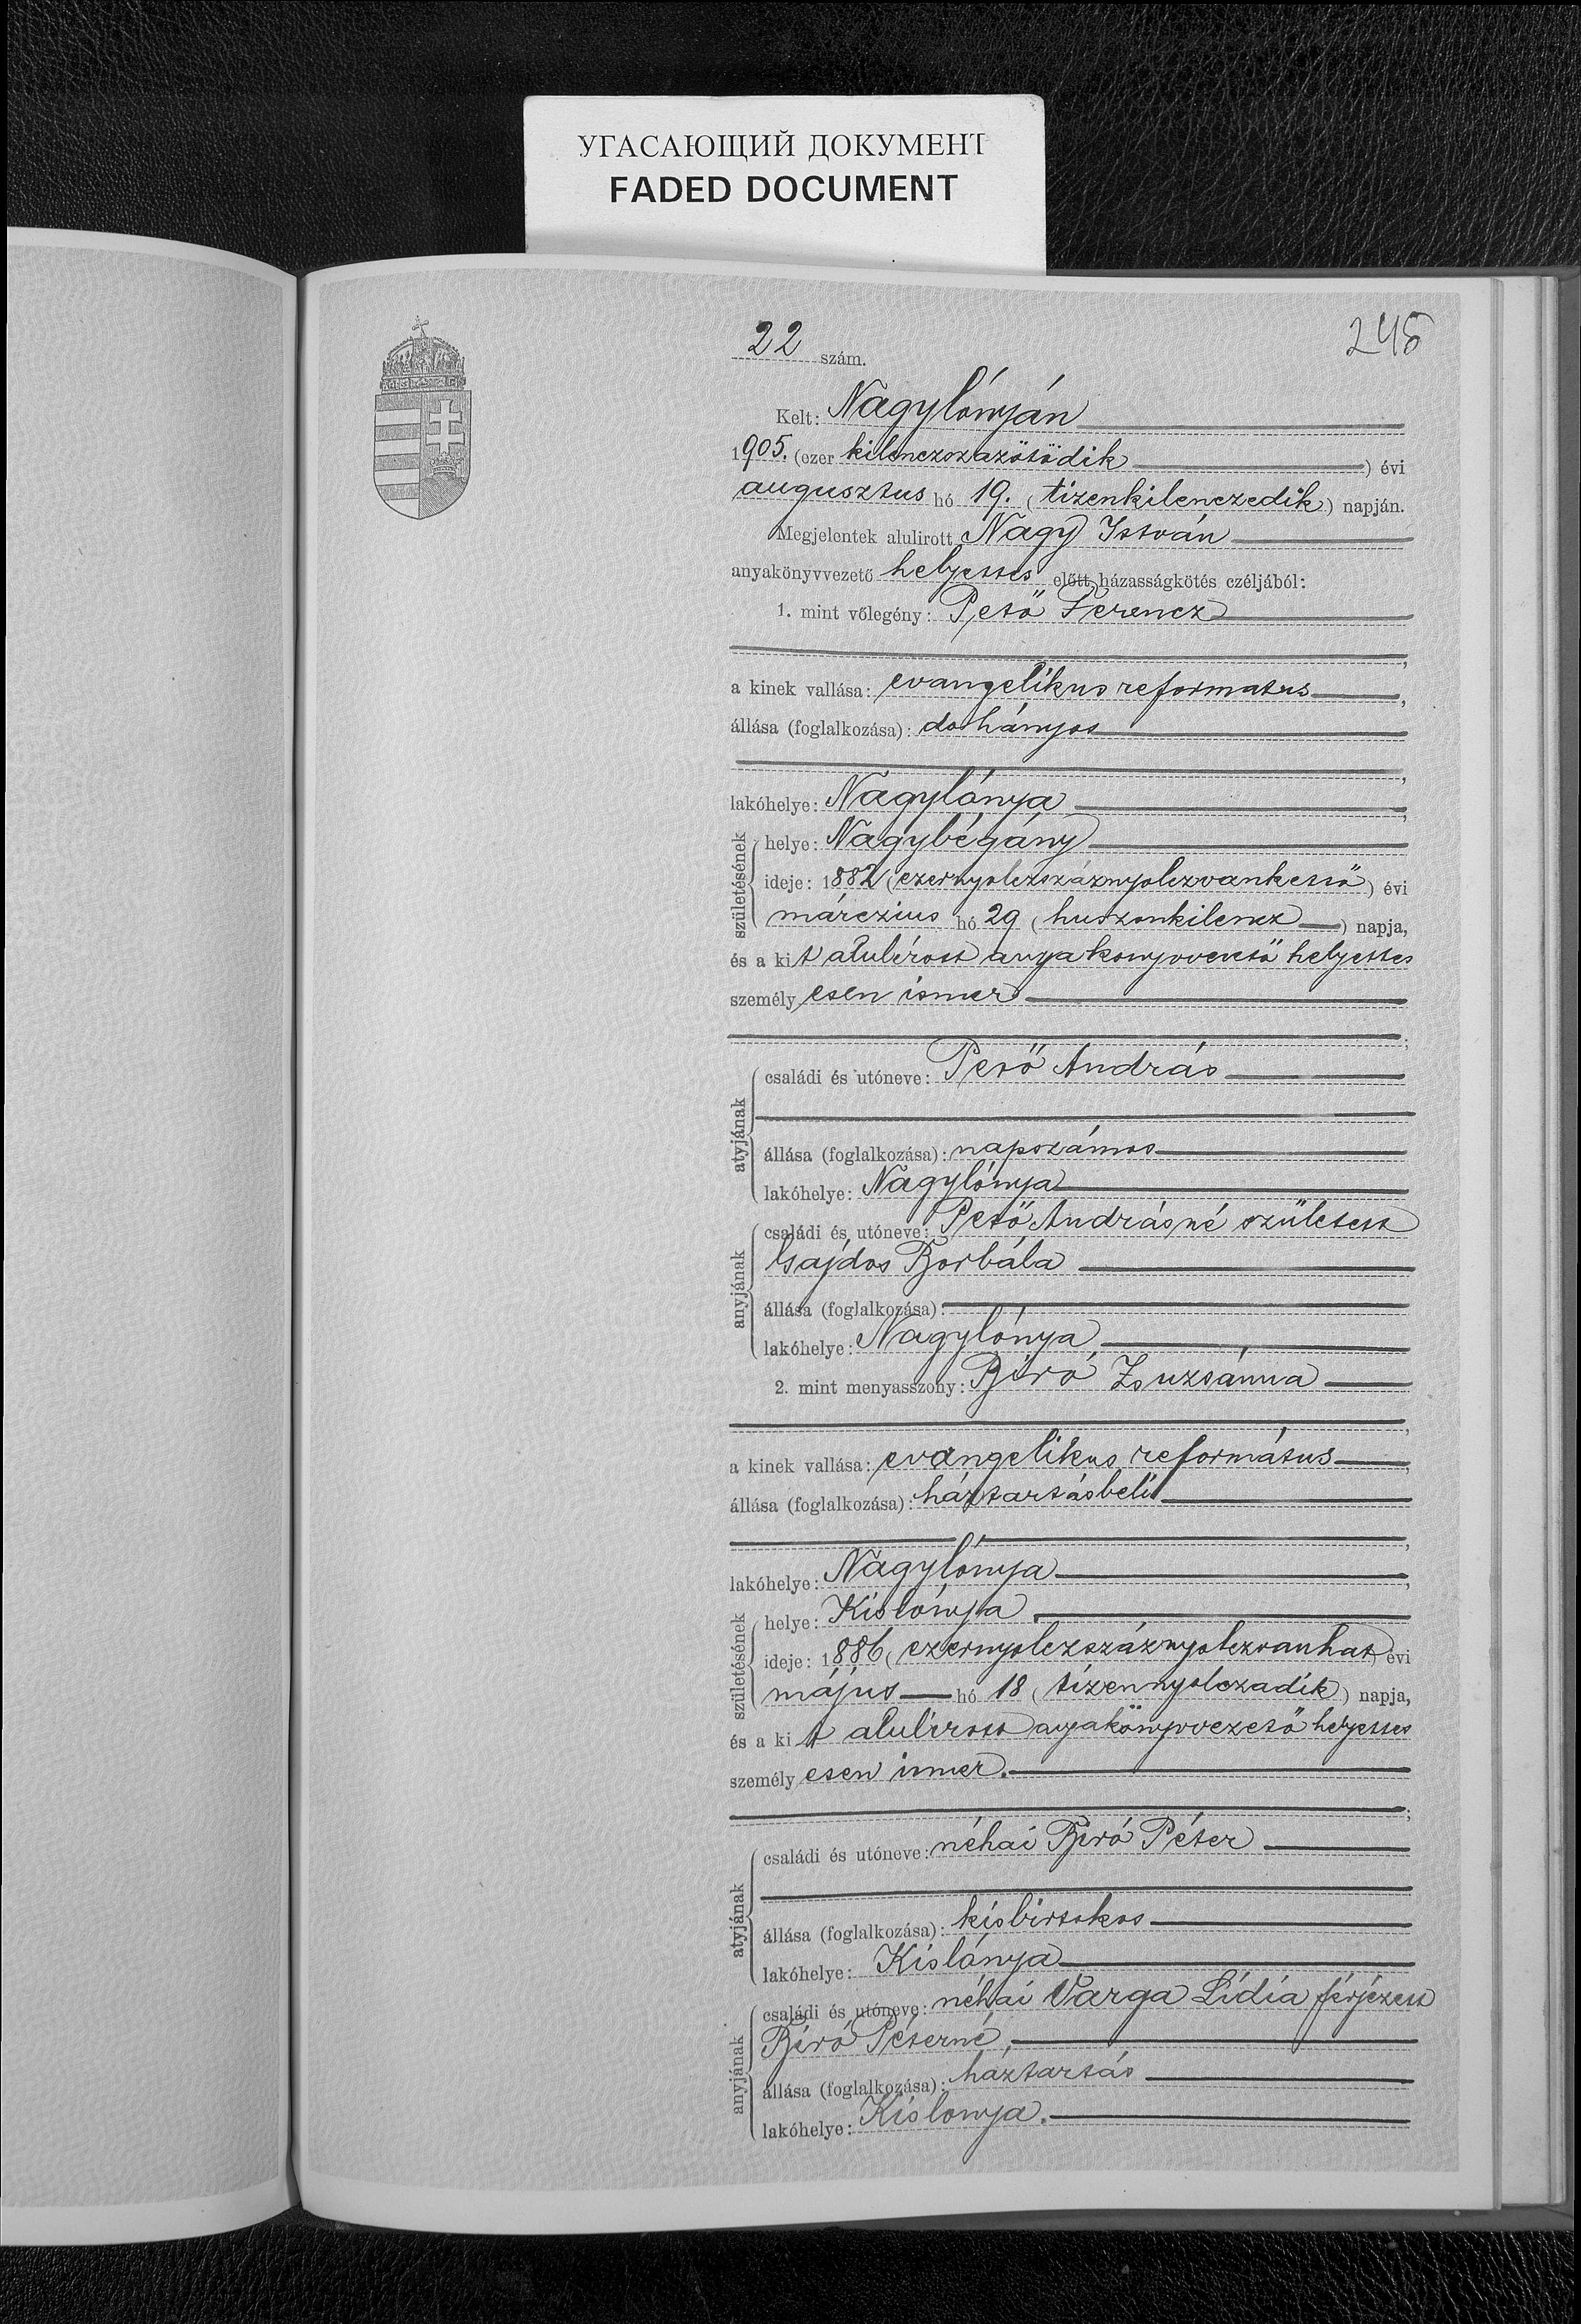 УГАСАЮЩИЙ ДОКУМЕНТ
FADED DOCUMENT
22 szám.
245
Kelt: Nagylónyán
1905. (ezer kilenczszázötödik) évi
augusztus hó 19. (tizenkilenczedik) napján.
Megjelentek alulirott Nagy István
anyakönyvvezető helyettes előtt házasságkötés czéljából:
1. mint vőlegény: Pető Ferencz
a kinek vallása: evangelikus reformatus,
állása (foglalkozása): dohányos
lakóhelye: Nagylónya,
születésének
helye: Nagybégány
ideje: 1882 (ezernyolczszáznyolczvankettő) évi
márczius hó 29 (huszonkilencz) napja,
és a kit alulírott anyakönyvvezető helyettes
személyesen ismer
atyjának
családi és utóneve: Pető András
állása (foglalkozása): napszámos
lakóhelye: Nagylónya
anyjának
családi és utóneve: Pető Andrásné született
Gajdos Borbála
állása (foglalkozása):
lakóhelye: Nagylónya
2. mint menyasszony: Biró Zsuzsánna
a kinek vallása: evangelikus református,
állása (foglalkozása): háztartásbeli
lakóhelye: Nagylónya,
születésének
helye: Kislónya
ideje: 1886 (ezernyolczszáznyolczvanhat) évi
május hó 18 (tizennyolczadik) napja,
és a kit alulírott anyakönyvvezető helyettes
személyesen ismer.
atyjának
családi és utóneve: néhai Biró Péter
állása (foglalkozása): kisbirtokos
lakóhelye: Kislónya
anyjának
családi és utóneve: néhai Varga Lídia férjezett
Bíró Péterné,
állása (foglalkozása): háztartás
lakóhelye: Kislonya.